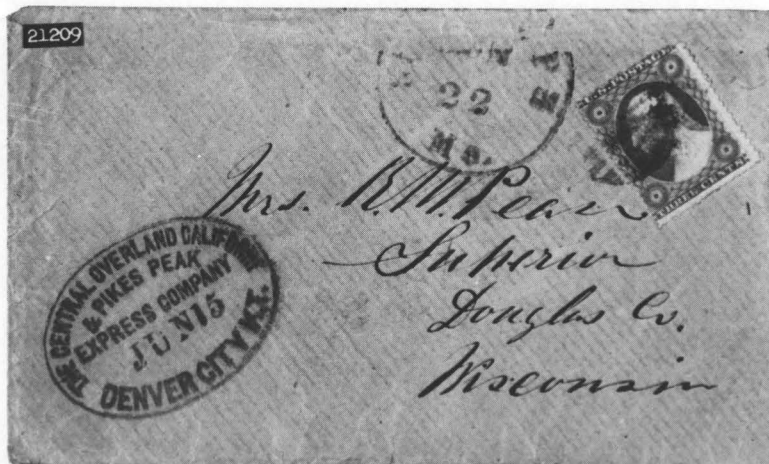 21209
22
Mo.
U.S. POSTAGE
THREE CENTS
Mrs. R. M.
Superior
Douglas Co.
Wisconsin
THE CENTRAL OVERLAND CALIFORNIA
& PIKES PEAK
EXPRESS COMPANY
JUN 15
DENVER CITY K.T.